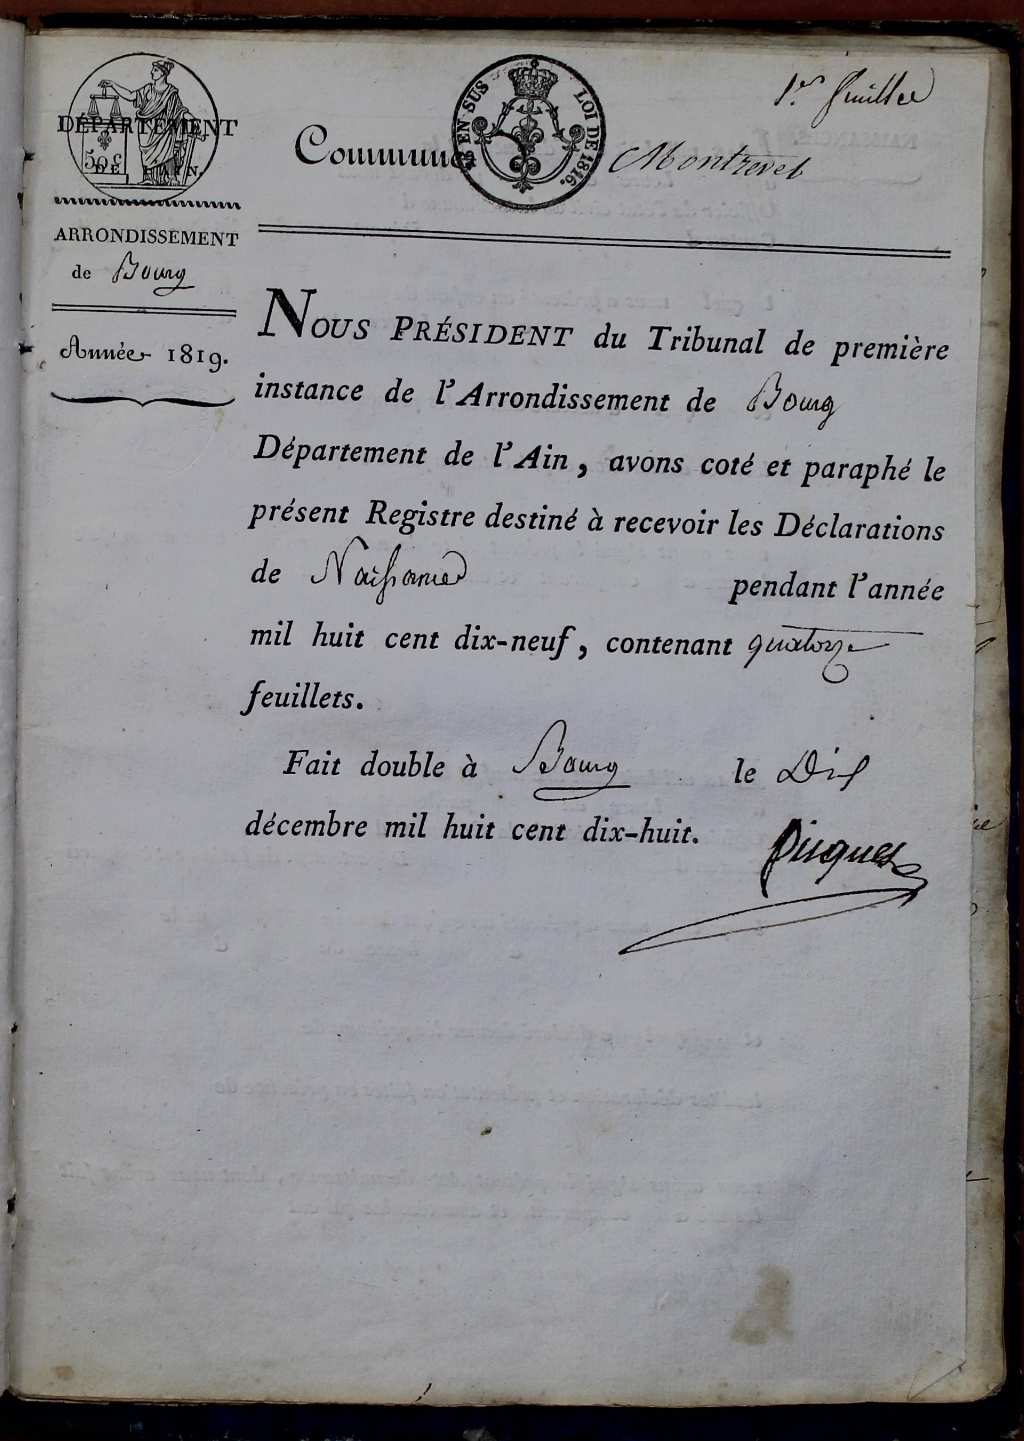 1er feuillet
DÉPARTEMENT
50 c
DE L'AIN.
EN SUS LOI DE 1816.
Commune Montrevel
ARRONDISSEMENT
de Bourg
Année 1819.
NOUS PRÉSIDENT du Tribunal de première
instance de l'Arrondissement de Bourg
Département de l'Ain, avons coté et paraphé le
présent Registre destiné à recevoir les Déclarations
de Naissance pendant l'année
mil huit cent dix-neuf, contenant quatorze
feuillets.
Fait double à Bourg le Dix
décembre mil huit cent dix-huit.